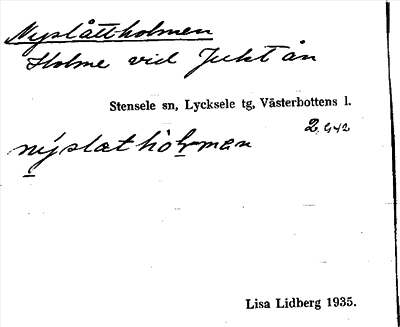 Nyslåttholmen
Holme vid Juktån
Stensele sn, Lycksele tg, Västerbottens l.
nýslat hòlmen
Lisa Lidberg 1935.